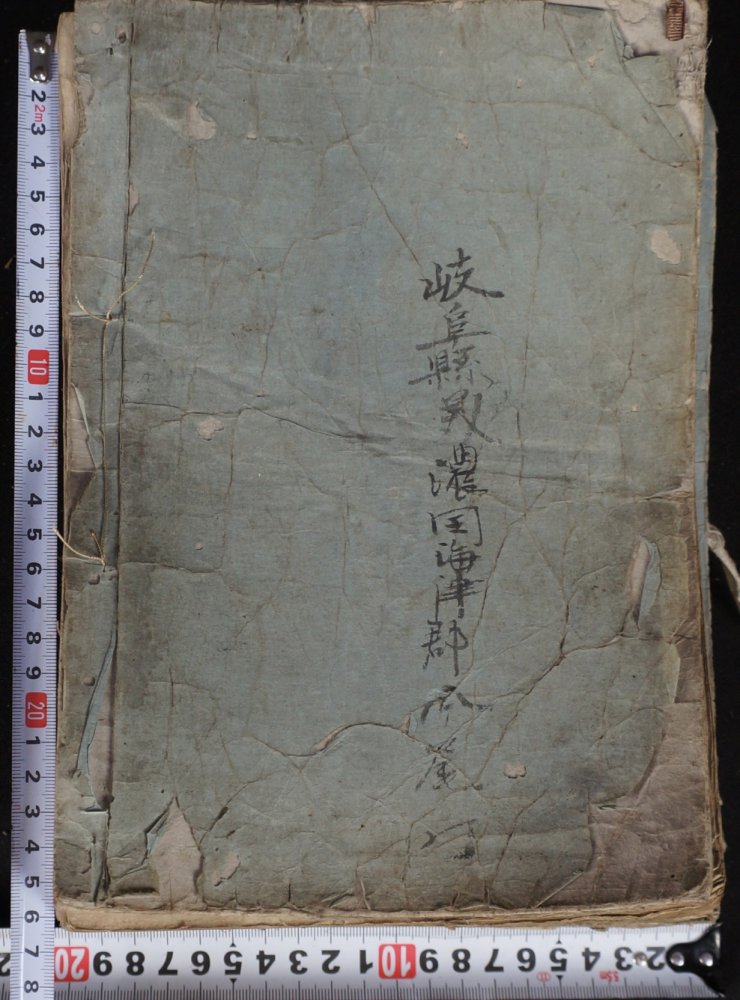 岐阜縣美濃国海津郡
2 2m 3 4 5 6 7 8 9 10 1 2 3 4 5 6 7 8 9 20 1 2 3 4 5 6 7 8
2 20 9 8 7 6 5 4 3 2 1 10 9 8 7 6 5 4 3 2